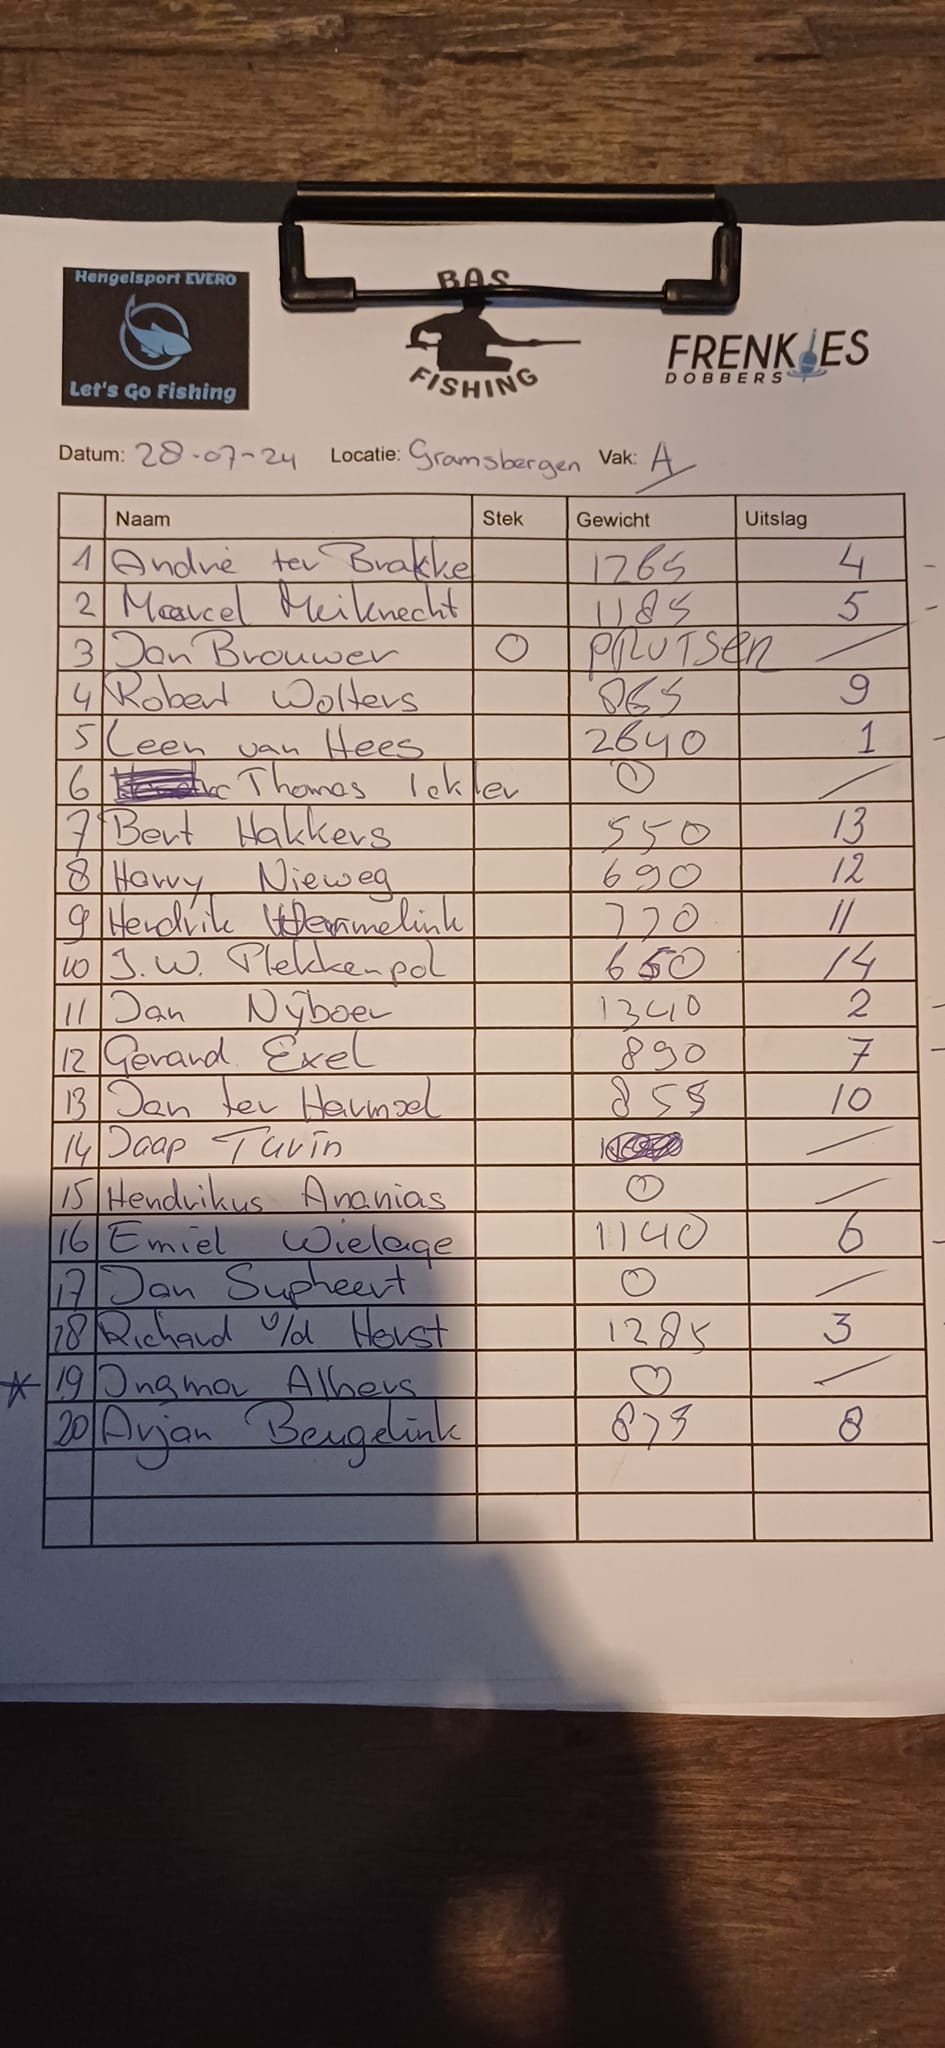 Hengelsport EVERO
Let's Go Fishing
BAS
FISHING
FRENKIES
DOBBERS
Datum: 28-07-24 Locatie: Gramsbergen Vak: A
Naam Stek Gewicht Uitslag
1 André ter Brakke 1265 4
2 Marcel Meiknecht 1185 5
3 Jan Brouwer O PRUTSEN /
4 Robert Wolters 865 9
5 Leen van Hees 2640 1
6 Thomas Ickler 0 /
7 Bert Hakkers 550 13
8 Harry Nieweg 690 12
9 Hendrik Wemmelink 770 11
10 J.W. Plekkenpol 650 14
11 Jan Nijboer 1340 2
12 Gerard Exel 890 7
13 Jan ter Harmsel 855 10
14 Jaap Turin /
15 Hendrikus Ananias 0 /
16 Emiel Wielage 1140 6
17 Jan Supheert 0 /
18 Richard v/d Horst 1285 3
* 19 Ingmar Albers 0 /
20 Arjan Beugelink 875 8